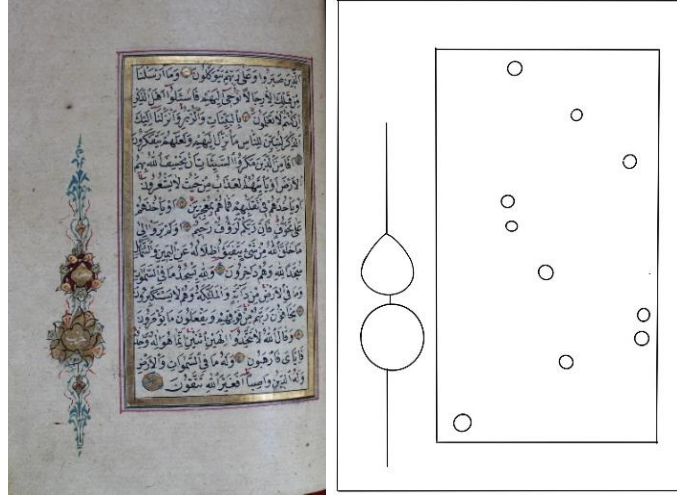 الذين صبروا وعلى ربهم يتوكلون وما ارسلنا
من قبلك الا رجالا نوحى اليهم فاسئلوا اهل الذكر
ان كنتم لا تعلمون بالبينات والزبر وانزلنا اليك
الذكر لتبين للناس ما نزل اليهم ولعلهم يتفكرون
افامن الذين مكروا السيئات ان يخسف الله بهم
الارض او ياتيهم العذاب من حيث لا يشعرون
او ياخذهم فى تقلبهم فما هم بمعجزين او ياخذهم
على تخوف فان ربكم لرؤف رحيم اولم يروا الى
ما خلق الله من شئ يتفيؤا ظلاله عن اليمين والشمائل
سجدا لله وهم داخرون ولله يسجد ما فى السموات
وما فى الارض من دابة والملئكة وهم لا يستكبرون
يخافون ربهم من فوقهم ويفعلون ما يؤمرون
وقال الله لا تتخذوا الهين اثنين انما هو اله واحد
فاياى فارهبون وله ما فى السموات والارض
وله الدين واصبا افغير الله تتقون